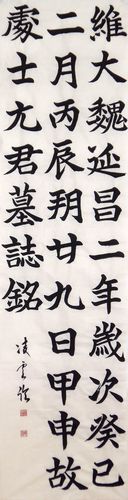 維大魏延昌二年歲次癸巳
二月丙辰朔廿九日甲申故
處士元君墓誌銘
凌雲